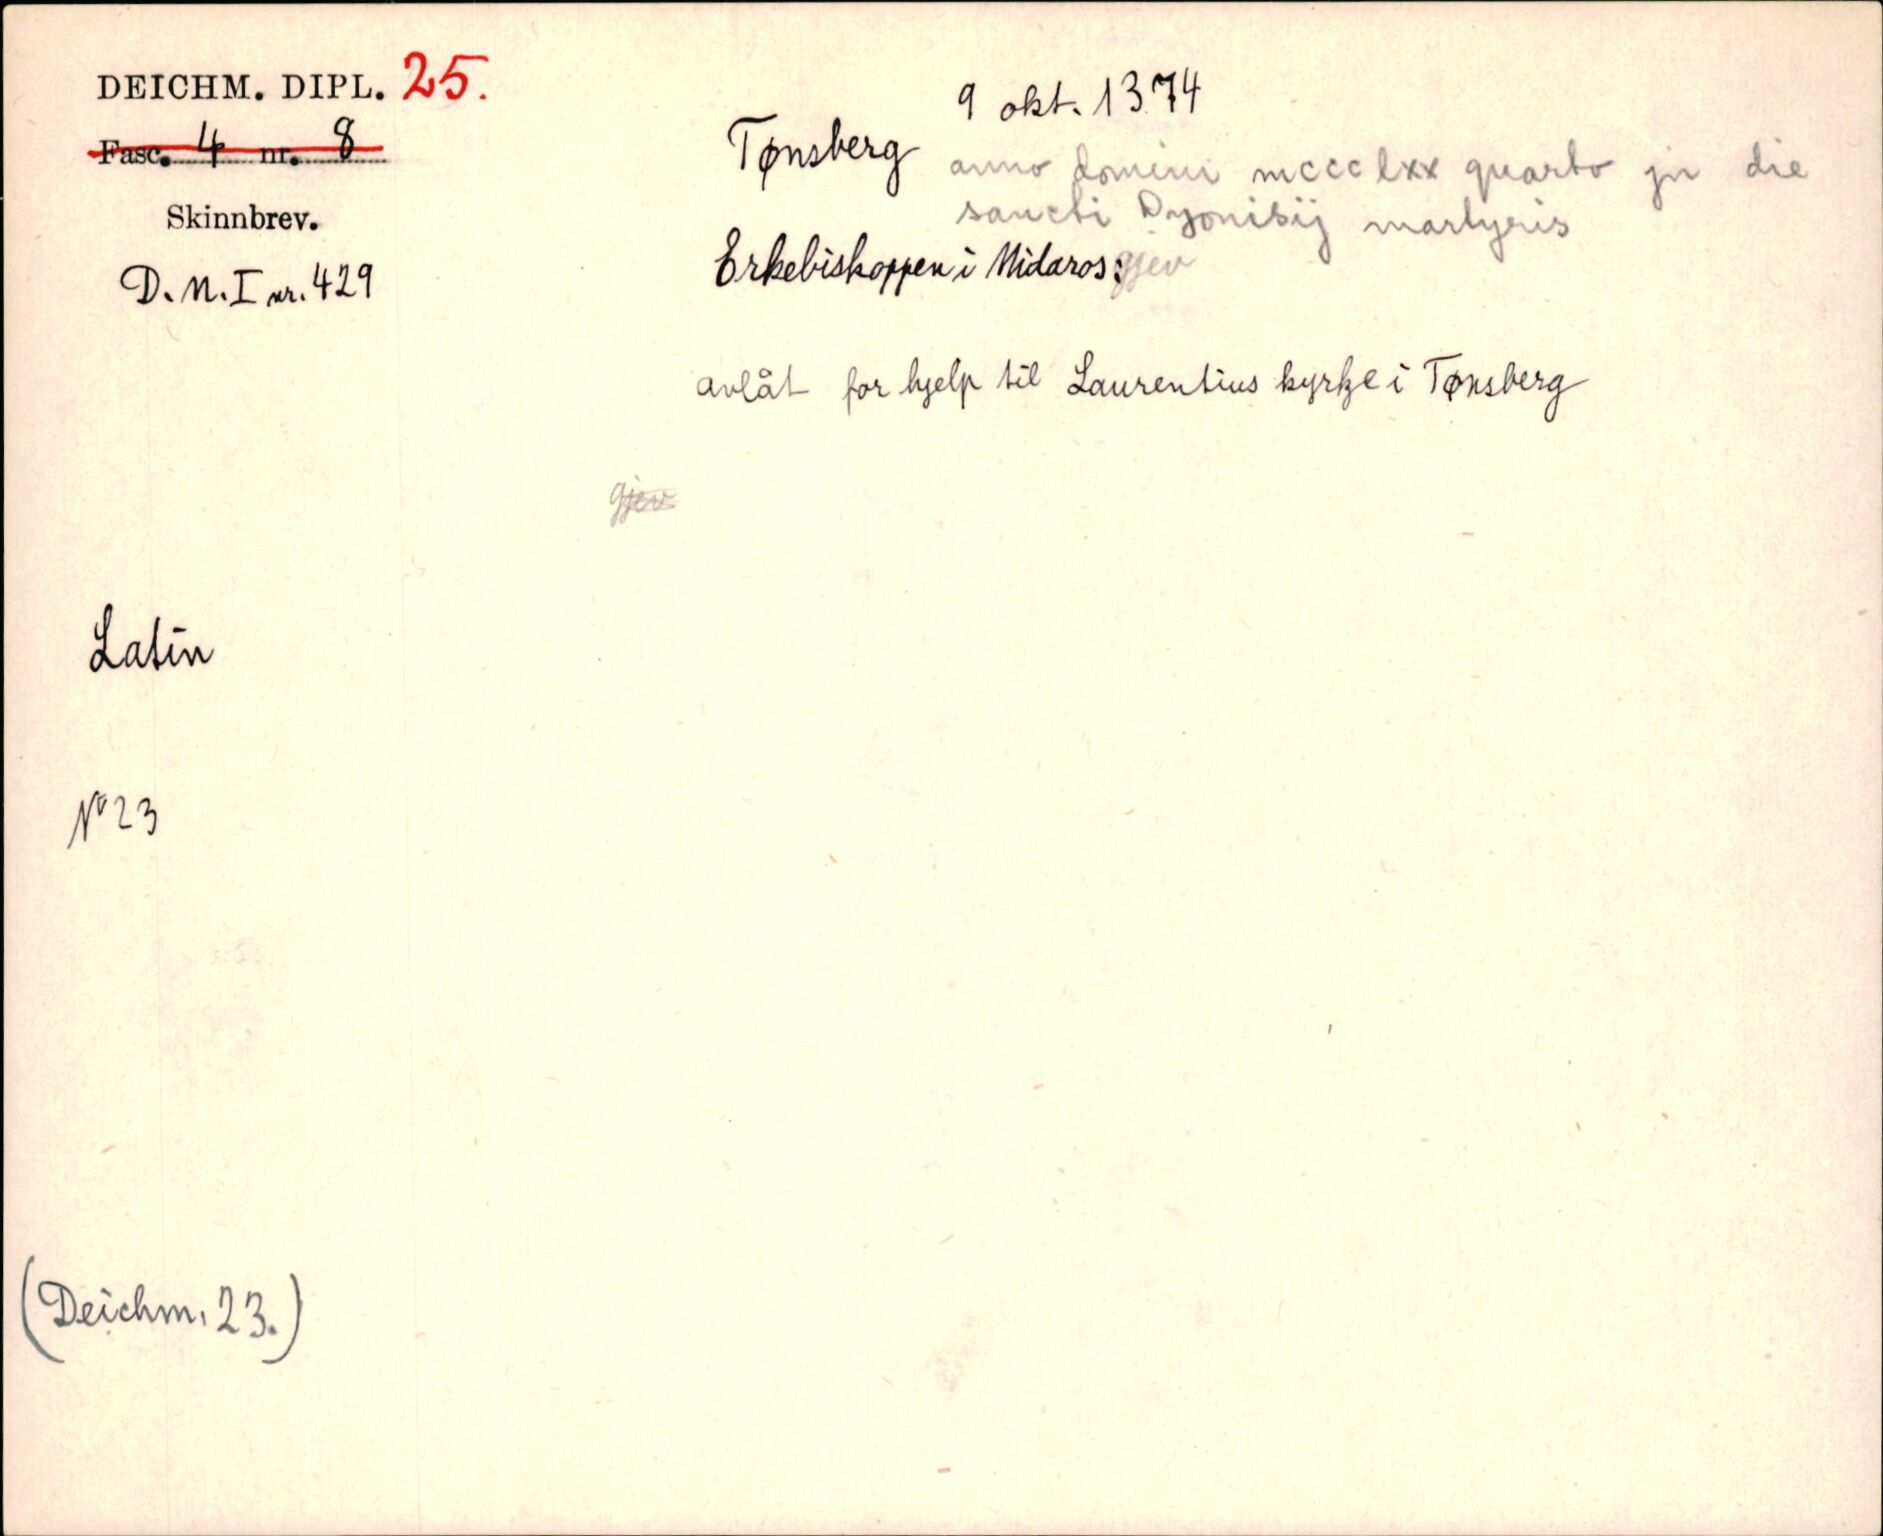 DEICHM. DIPL. 25.
Fasc. 4 nr. 8
Skinnbrev.
D.N.I nr. 429
9 okt. 1374
Tønsberg anno domini mccclxx quarto jn die
sancti Dyonisij martyris
Erkebiskoppen i Nidaros: gjev
avlåt for hjelp til Laurentius kyrkje i Tønsberg
gjev
Latin
Nº 23
(Deichm. 23.)